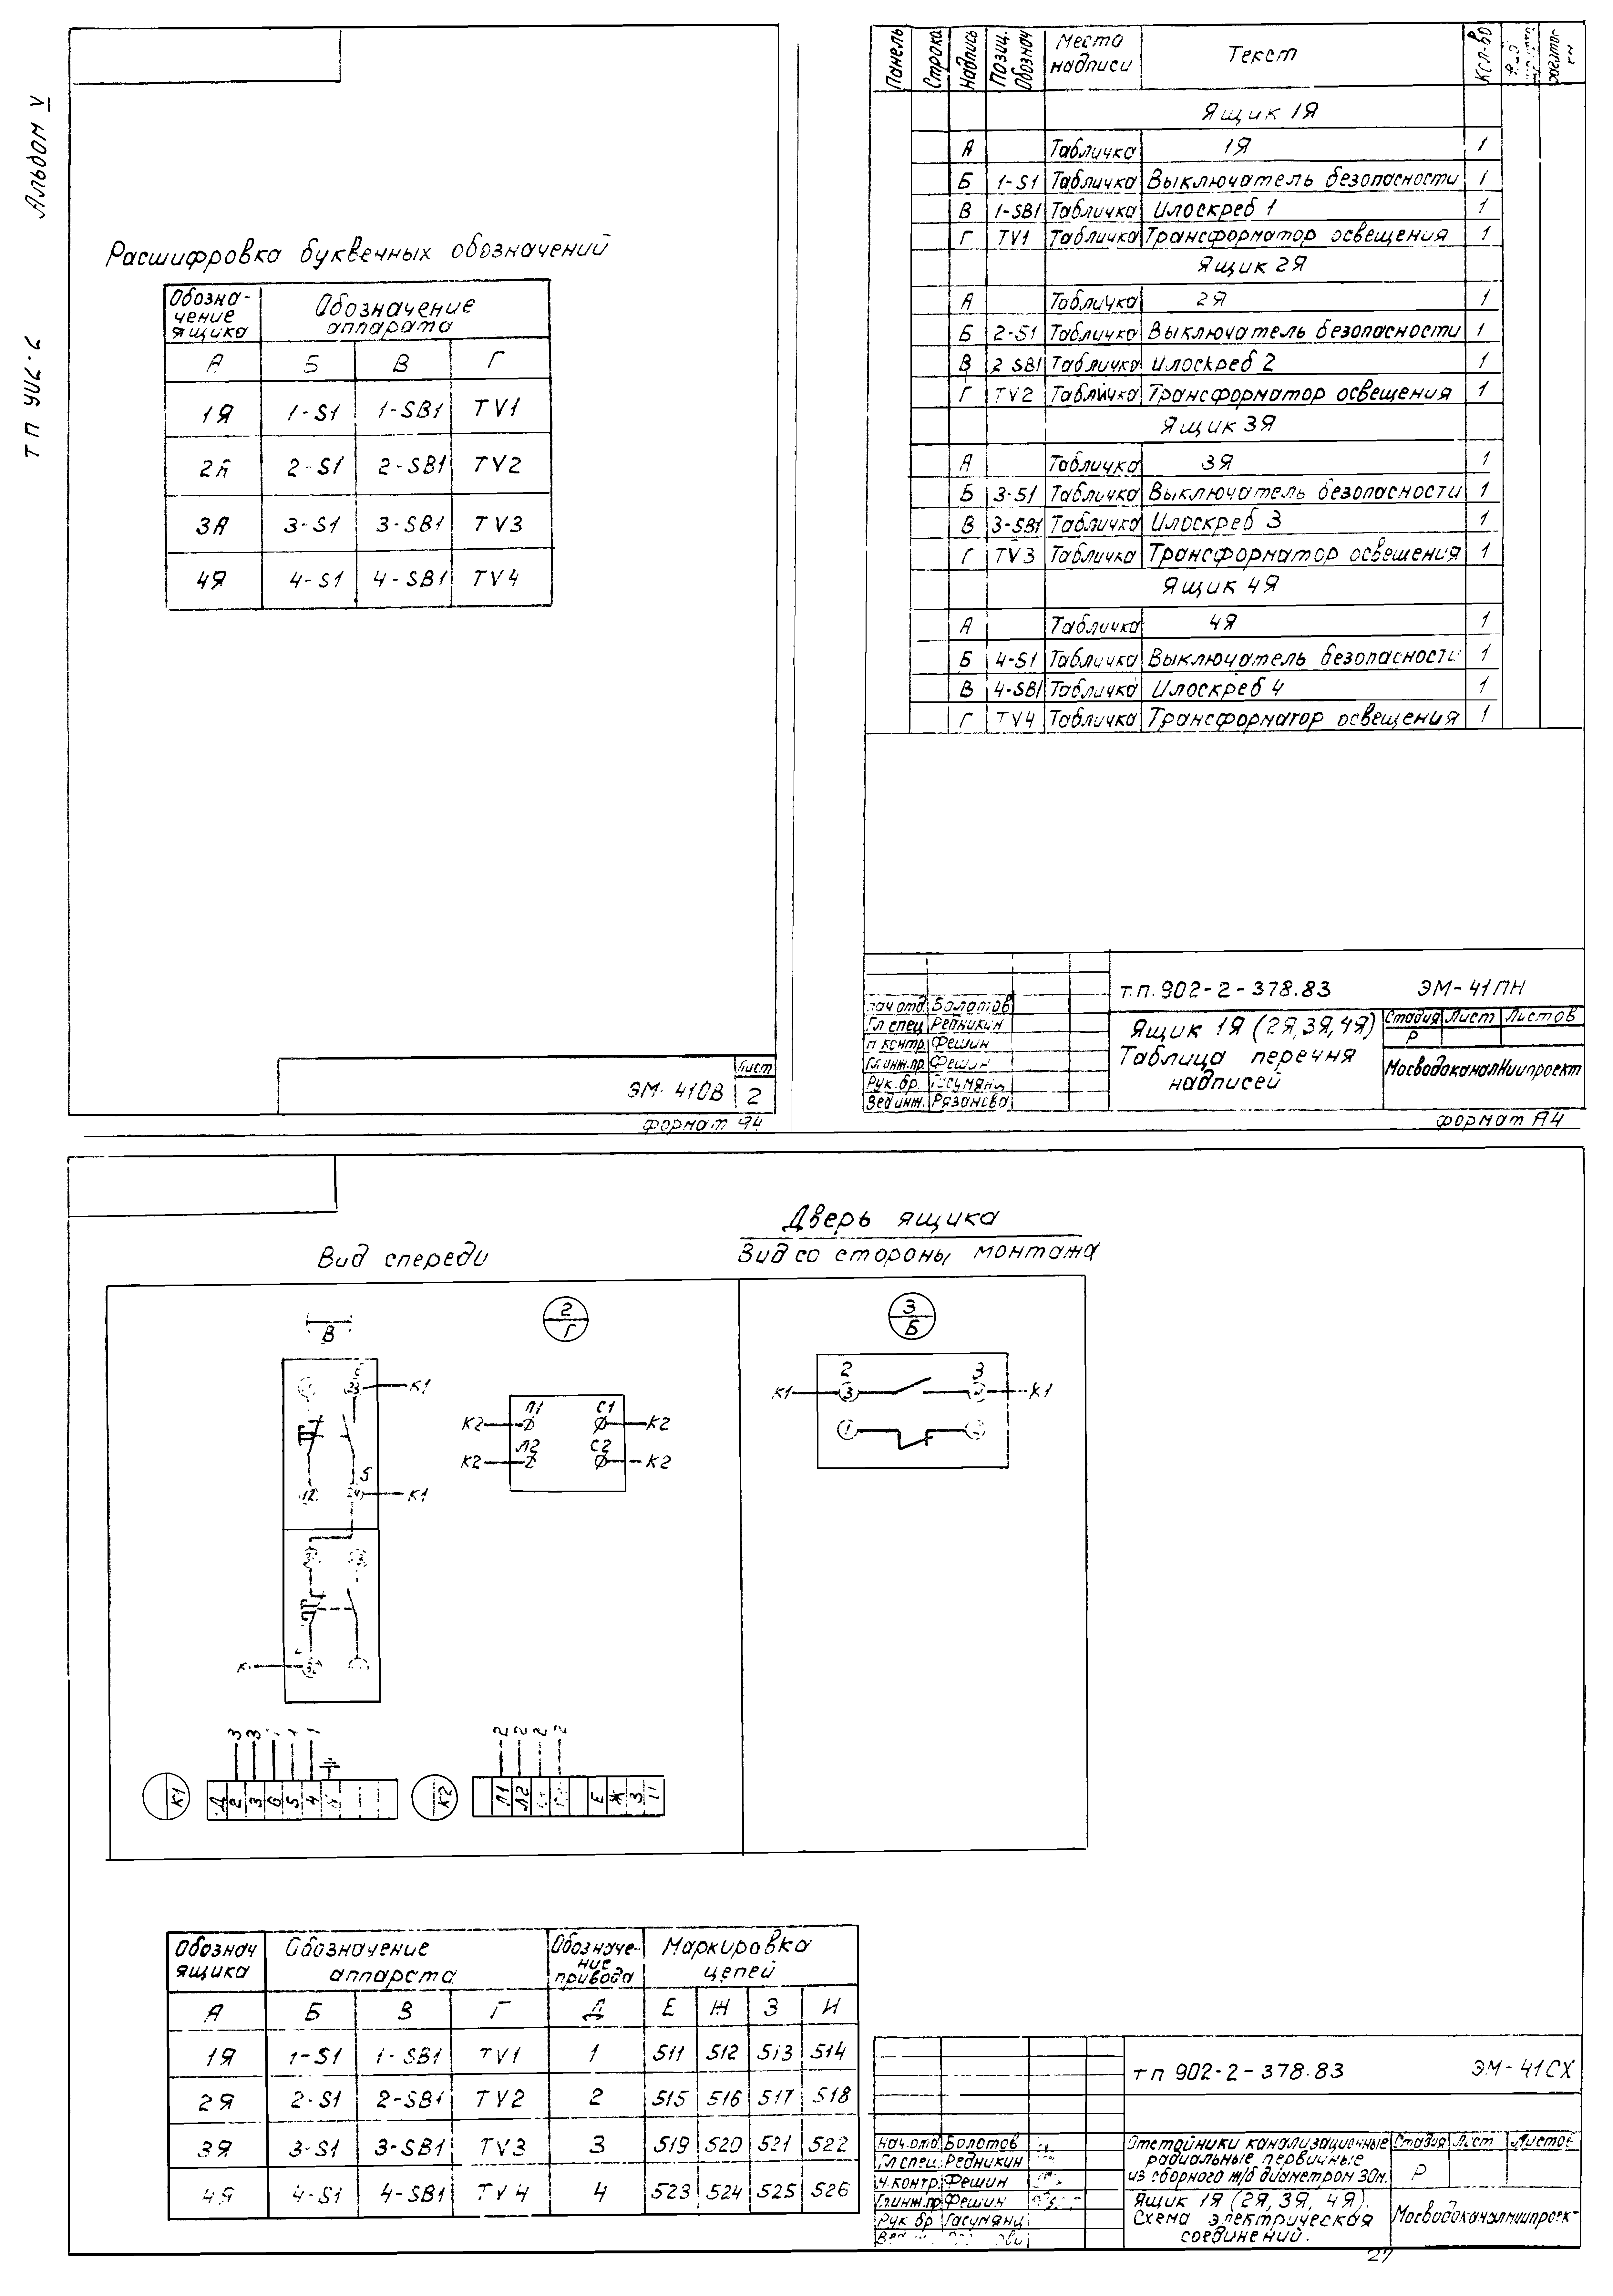 Альбом V
Расшифровка буквенных обозначений
Обозна-чение ящика Обозначение аппарата
А Б В Г
1Я 1-S1 1-SB1 TV1
2Я 2-S1 2-SB1 TV2
3Я 3-S1 3-SB1 TV3
4Я 4-S1 4-SB1 TV4
ЭМ-41ОВ
Лист
2
формат А4
Панель Строка Надпись Позиц. Обознач Место надписи Текст Кол-во
Ящик 1Я
А Табличка 1Я 1
Б 1-S1 Табличка Выключатель безопасности 1
В 1-SB1 Табличка Илоскреб 1 1
Г TV1 Табличка Трансформатор освещения 1
Ящик 2Я
А Табличка 2Я 1
Б 2-S1 Табличка Выключатель безопасности 1
В 2 SB1 Табличка Илоскреб 2 1
Г TV2 Табличка Трансформатор освещения 1
Ящик 3Я
А Табличка 3Я 1
Б 3-S1 Табличка Выключатель безопасности 1
В 3-SB1 Табличка Илоскреб 3 1
Г TV3 Табличка Трансформатор освещения 1
Ящик 4Я
А Табличка 4Я 1
Б 4-S1 Табличка Выключатель безопасности 1
В 4-SB1 Табличка Илоскреб 4 1
Г TV4 Табличка Трансформатор освещения 1
т.п. 902-2-378.83 ЭМ-41ПН
Нач отд. Болотов
Гл спец. Редникин
н контр. Фешин
Гл инж.пр. Фешин
Рук.бр. Гасумянц
Вед инж. Рязанова
Ящик 1Я (2Я,3Я,4Я)
Таблица перечня
надписей
Стадия Лист Листов
Р
МосводоканалНиипроект
формат А4
Дверь ящика
Вид спереди
Вид со стороны монтажа
В
2
Г
3
Б
23 К1
5
24 К1
12
Л1 С1
К2 К2
Л2 С2
К2 К2
2 3
К1 3 К1
1
3 3
2 2 2 2
К1
Д 2 3 6 5 4
К2
Л1 Л2 Е Ж З И
Обознач ящика Обозначение аппарата Обозначе-ние привода Маркировка цепей
А Б В Г Д Е Ж З И
1Я 1-S1 1-SB1 TV1 1 511 512 513 514
2Я 2-S1 2-SB1 TV2 2 515 516 517 518
3Я 3-S1 3-SB1 TV3 3 519 520 521 522
4Я 4-S1 4-SB1 TV4 4 523 524 525 526
тп 902-2-378.83 ЭМ-41СХ
Нач.отд Болотов
Гл спец. Редникин
Н.контр. Фешин
Гл инж.пр Фешин
Рук бр Гасумянц
Отстойники канализационные
радиальные первичные
из сборного ж/б диаметром 30м.
Стадия Лист Листов
Р
Ящик 1Я (2Я, 3Я, 4Я).
Схема электрическая
соединений.
Мосводоканалниипроект
27